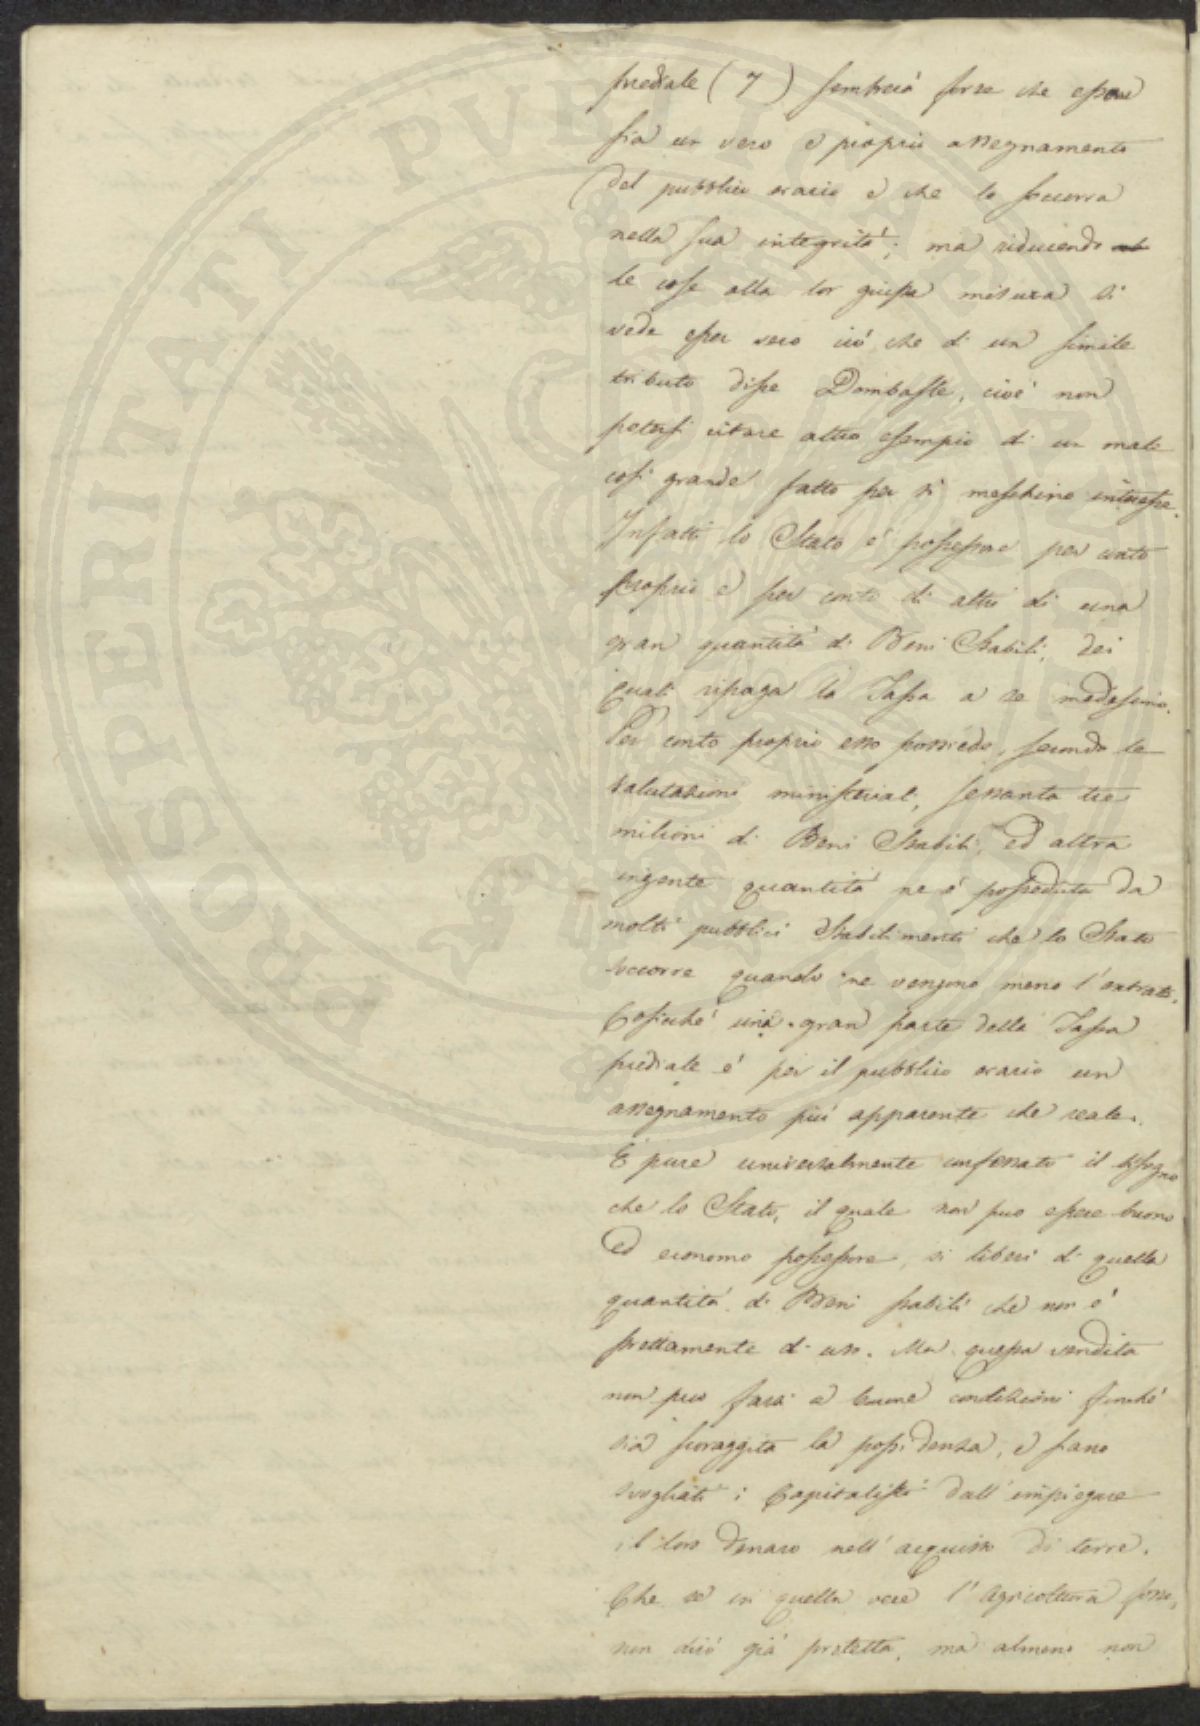 prediale (7) sembrerà forse che essa
sia un vero e proprio assegnamento
del pubblico erario e che lo soccorra
nella sua integrità; ma riducendo
le cose alla lor giusta misura si
vede esser vero ciò che di un simile
tributo disse Dombasle, cioè non
potersi citare altro esempio di un male
così grande fatto per sì meschino interesse.
Infatti lo Stato è possessore per conto
proprio e per conto di altri di una
gran quantità di Beni Stabili, dei
quali ripaga la Tassa a se medesimo.
Per conto proprio esso possiede, secondo le
valutazioni ministeriali, sessanta tre
milioni di Beni Stabili, ed altra
ingente quantità ne è posseduta da
molti pubblici Stabilimenti che lo Stato
soccorre quando ne vengono meno l'entrate.
Cosicché una gran parte della Tassa
prediale è per il pubblico erario un
assegnamento più apparente che reale.
È pure universalmente confessato il bisogno
che lo Stato, il quale non può essere buono
ed economo possessore, si liberi di quella
quantità di Beni stabili che non è
strettamente di uso. Ma questa vendita
non può farsi a buone condizioni finché
sia scoraggita la possidenza, e siano
svogliati i Capitalisti dall'impiegare
il loro denaro nell'acquisto di terre.
Che se in quella vece l'Agricoltura fosse,
non dirò già protetta, ma almeno non
PROSPERITATI PVBLICAE